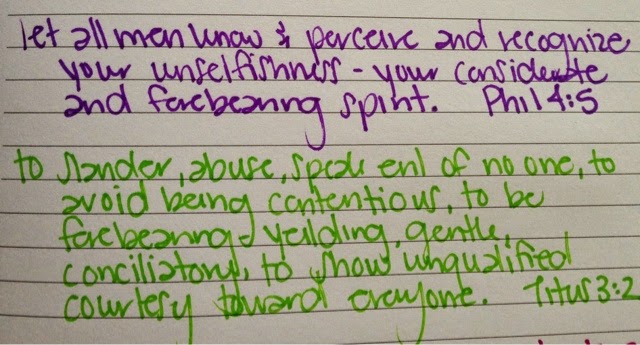 let all men know & perceive and recognize
your unselfishness - your considerate
and forebearing spirit. Phil 4:5
to slander, abuse, speak evil of no one, to
avoid being contentious, to be
forebearing & yeilding, gentle,
conciliatory, to show unqualified
courtesy toward everyone. Titus 3:2